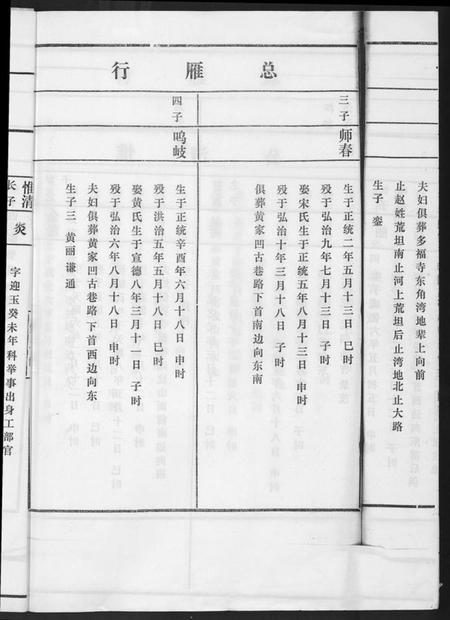 夫妇俱葬多福寺东角湾地辈上向前
止赵姓荒坦南止河上荒坦后止湾地北止大路
生子 銮
总雁行
三子 师春
生于正统二年五月十三日 巳时
殁于弘治九年七月十三日 子时
娶宋氏生于正统五年八月十三日 亥时
殁于弘治十年三月十八日 子时
俱葬黄家凹古巷路下首南边向东南
四子 鸣岐
生于正统辛酉年六月十八日 申时
殁于洪治五年五月十八日 巳时
娶黄氏生于宣德八年三月十一日 子时
殁于弘治六年八月十八日 申时
夫妇俱葬黄家凹古巷路下首西边向东
生子三 黄丽谦通
惟清
长子 炎
字迎玉癸未年科举事出身工部官